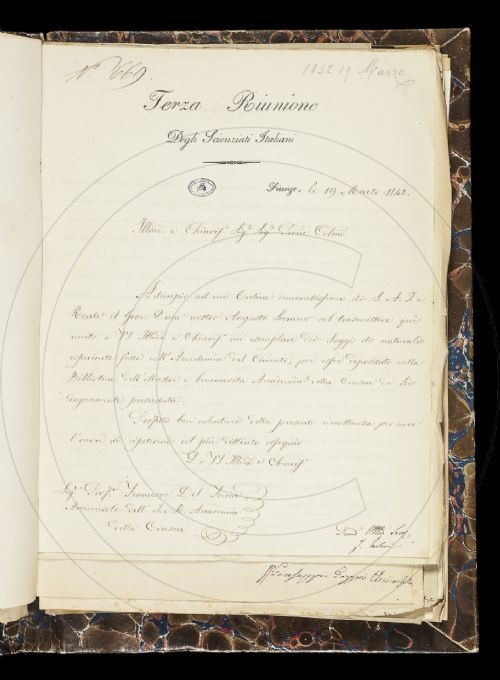 N.° 669.
1842. 19 Marzo
Terza Riunione
Degli Scienziati Italiani
Firenze, li 19 Marzo 1842.
Illmo. e Chiariss. Sig. Sig. Prone Colmo
Adempio ad un Ordine veneratissimo di S. A. I. e
Reale il Gran Duca nostro Augusto Sovrano col trasmettere qui
unito a VS. Illma e Chiariss. un esemplare dei Saggi di naturali
esperienze fatte nell'Accademia del Cimento, per esser depositato nella
Biblioteca dell'Illustre e benemerita Accademia della Crusca da Lei
degnamente presieduta.
Profitto ben volentieri della presente circostanza per aver
l'onore di ripetermi col più distinto ossequio
Di VS. Illma e Chiariss.
Sig. Prof. Francesco Del Furia
Arciconsolo dell' I. e R. Accademia
della Crusca